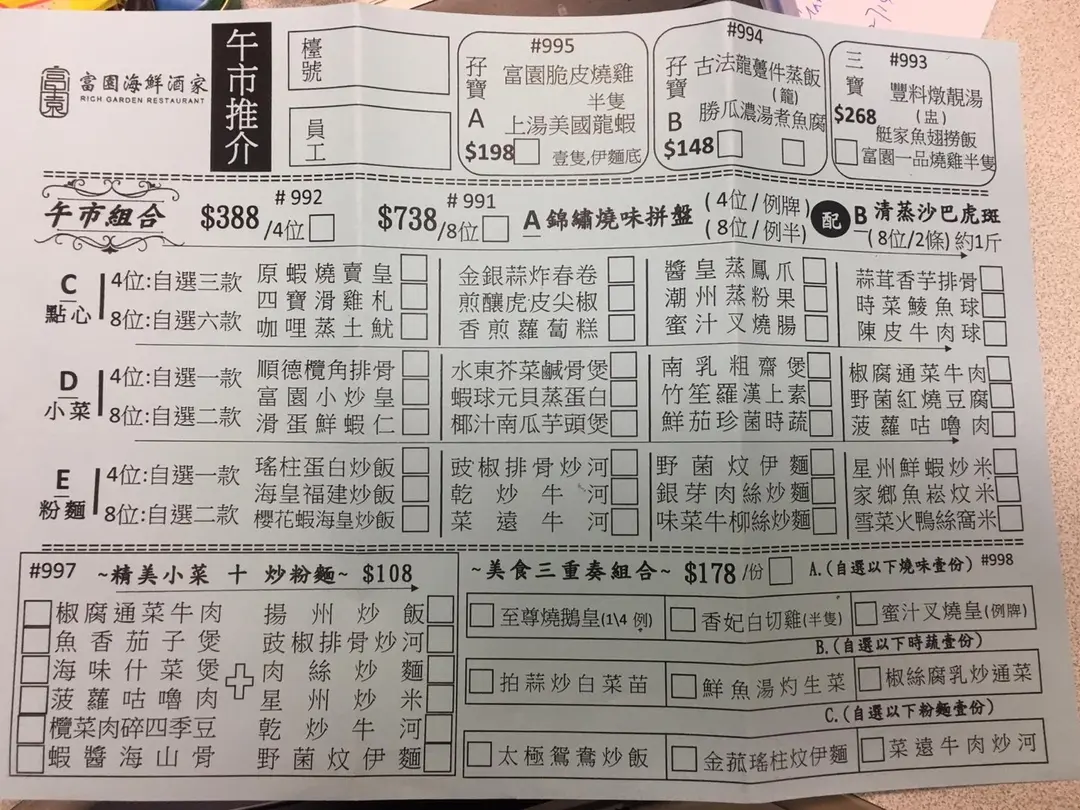 富園海鮮酒家
RICH GARDEN RESTAURANT
午市推介
檯號
員工
#995
孖寶 A
富園脆皮燒雞
半隻
上湯美國龍蝦
$198
壹隻,伊麵底
#994
孖寶 B
古法龍躉件蒸飯
(籠)
勝瓜濃湯煮魚腐
$148
#993
三寶
豐料燉靚湯
(盅)
$268
艇家魚翅撈飯
富園一品燒雞半隻
午市組合
$388 /4位 # 992
$738 /8位 # 991
A 錦繡燒味拼盤 (4位/例牌) (8位/例半)
配
B 清蒸沙巴虎斑
(8位/2條) 約1斤
C 點心
4位:自選三款
8位:自選六款
原蝦燒賣皇 金銀蒜炸春卷 醬皇蒸鳳爪 蒜茸香芋排骨
四寶滑雞札 煎釀虎皮尖椒 潮州蒸粉果 時菜鯪魚球
咖哩蒸土魷 香煎蘿蔔糕 蜜汁叉燒腸 陳皮牛肉球
D 小菜
4位:自選一款
8位:自選二款
順德欖角排骨 水東芥菜鹹骨煲 南乳粗齋煲 椒腐通菜牛肉
富園小炒皇 蝦球元貝蒸蛋白 竹笙羅漢上素 野菌紅燒豆腐
滑蛋鮮蝦仁 椰汁南瓜芋頭煲 鮮茄珍菌時蔬 菠蘿咕嚕肉
E 粉麵
4位:自選一款
8位:自選二款
瑤柱蛋白炒飯 豉椒排骨炒河 野菌炆伊麵 星州鮮蝦炒米
海皇福建炒飯 乾炒牛河 銀芽肉絲炒麵 家鄉魚崧炆米
櫻花蝦海皇炒飯 菜遠牛河 味菜牛柳絲炒麵 雪菜火鴨絲窩米
#997 ~精美小菜 十 炒粉麵~ $108
椒腐通菜牛肉 揚州炒飯
魚香茄子煲 豉椒排骨炒河
海味什菜煲 肉絲炒麵
菠蘿咕嚕肉 星州炒米
欖菜肉碎四季豆 乾炒牛河
蝦醬海山骨 野菌炆伊麵
~美食三重奏組合~ $178 /份 A.(自選以下燒味壹份) #998
至尊燒鵝皇(1\4 例) 香妃白切雞(半隻) 蜜汁叉燒皇(例牌)
B.(自選以下時蔬壹份)
拍蒜炒白菜苗 鮮魚湯灼生菜 椒絲腐乳炒通菜
C.(自選以下粉麵壹份)
太極鴛鴦炒飯 金菰瑤柱炆伊麵 菜遠牛肉炒河